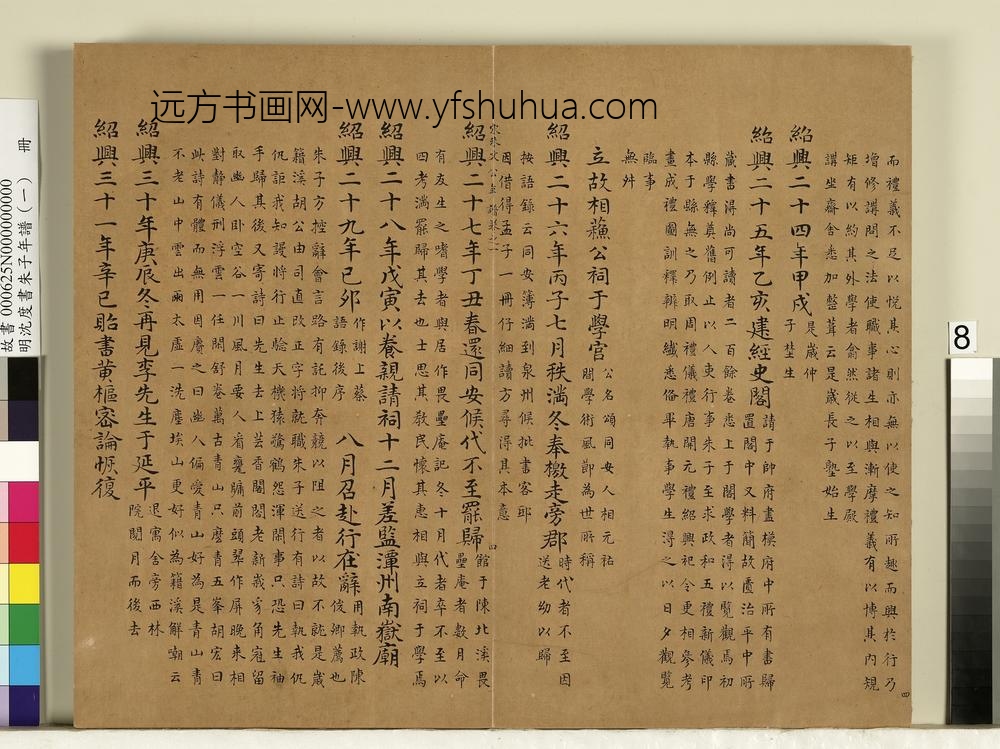 远方书画网-www.yfshuhua.com
而禮義不足以悅其心則亦無以使之知所趣而興於行乃
增修講問之法使職事諸生相與漸摩禮義有以博其內規
矩有以約其外學者翕然從之以至學殿
講坐齋舍悉加整葺云是歲長子塾始生
紹興二十四年甲戌
是歲仲
子埜生
紹興二十五年乙亥建經史閣
請于帥府盡模府中所有書歸
置閣中又料簡故匱治平中所
藏書得尚可讀者二百餘卷悉上于閣學者得以覽觀焉初
縣學釋奠舊例止以人吏行事朱子至求政和五禮新儀印
本于縣無之乃取周禮儀禮唐開元禮紹興祀令更相參考
畫成禮圖訓釋辨明纎悉俻畢執事學生得之以日夕觀覽
臨事
無舛
立故相蘓公祠于學宮
公名頌同安人相元祐
間學術風節為世所稱
紹興二十六年丙子七月秩滿冬奉檄走旁郡
時代者不至因
送老幼以歸
按語錄云同安簿滿到泉州候批書客邸
因借得孟子一冊仔細讀方尋得其本意
宋朱文公年譜卷之一
四
紹興二十七年丁丑春還同安候代不至罷歸
館于陳北溪畏
壘庵者數月命
有友生之嗜學者與居作畏壘庵記冬十月代者卒不至以
四考滿罷歸其去也士思其教民懷其惠相與立祠于學焉
紹興二十八年戊寅以養親請祠十二月差監潭州南嶽廟
紹興二十九年己卯
作謝上蔡
語錄後序
八月召赴行在辭
用執政陳
俊卿薦也
朱子方控辭會言路有託抑奔競以阻之者以故不就是歲
籍溪胡公由司直改正字將就職朱子送行有詩曰執我仇
仇詎我知謾將行止驗天機猿驚鶴怨渾閒事只恐先生袖
手歸其後又寄詩曰先生去上芸香閣閣老新峩豸角冠留
取幽人卧空谷一川風月要人看甕牖前頭翠作屏晚來相
對靜儀刑浮雲一任閒舒卷萬古青山只麼青五峯胡宏曰
此詩有體而無用因賡之曰幽人偏愛青山好為是青山青
不老山中雲出雨太虛一洗塵埃山更好似為籍溪解嘲云
紹興三十年庚辰冬再見李先生于延平
退寓舍旁西林
院閱月而後去
紹興三十一年辛巳貽書黃樞密論恢復
故書 000625N000000000
明沈度書朱子年譜(一) 冊
8